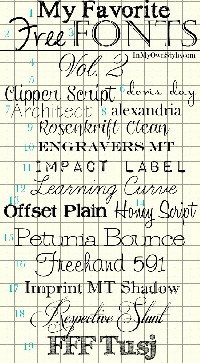 1 My Favorite
2 Free 3 FONTS
InMyOwnStyle.com
4 Vol. 2
5 Clipper Script 6 doris day
7 Architect 8 alexandria
9 Rosenkrift Clean
10 ENGRAVERS MT
11 IMPACT LABEL
12 Learning Curve
13 Offset Plain 14 Honey Script
15 Petunia Bounce
16 Freehand 591
17 Imprint MT Shadow
18 Respective Slant
19 FFF Tusj